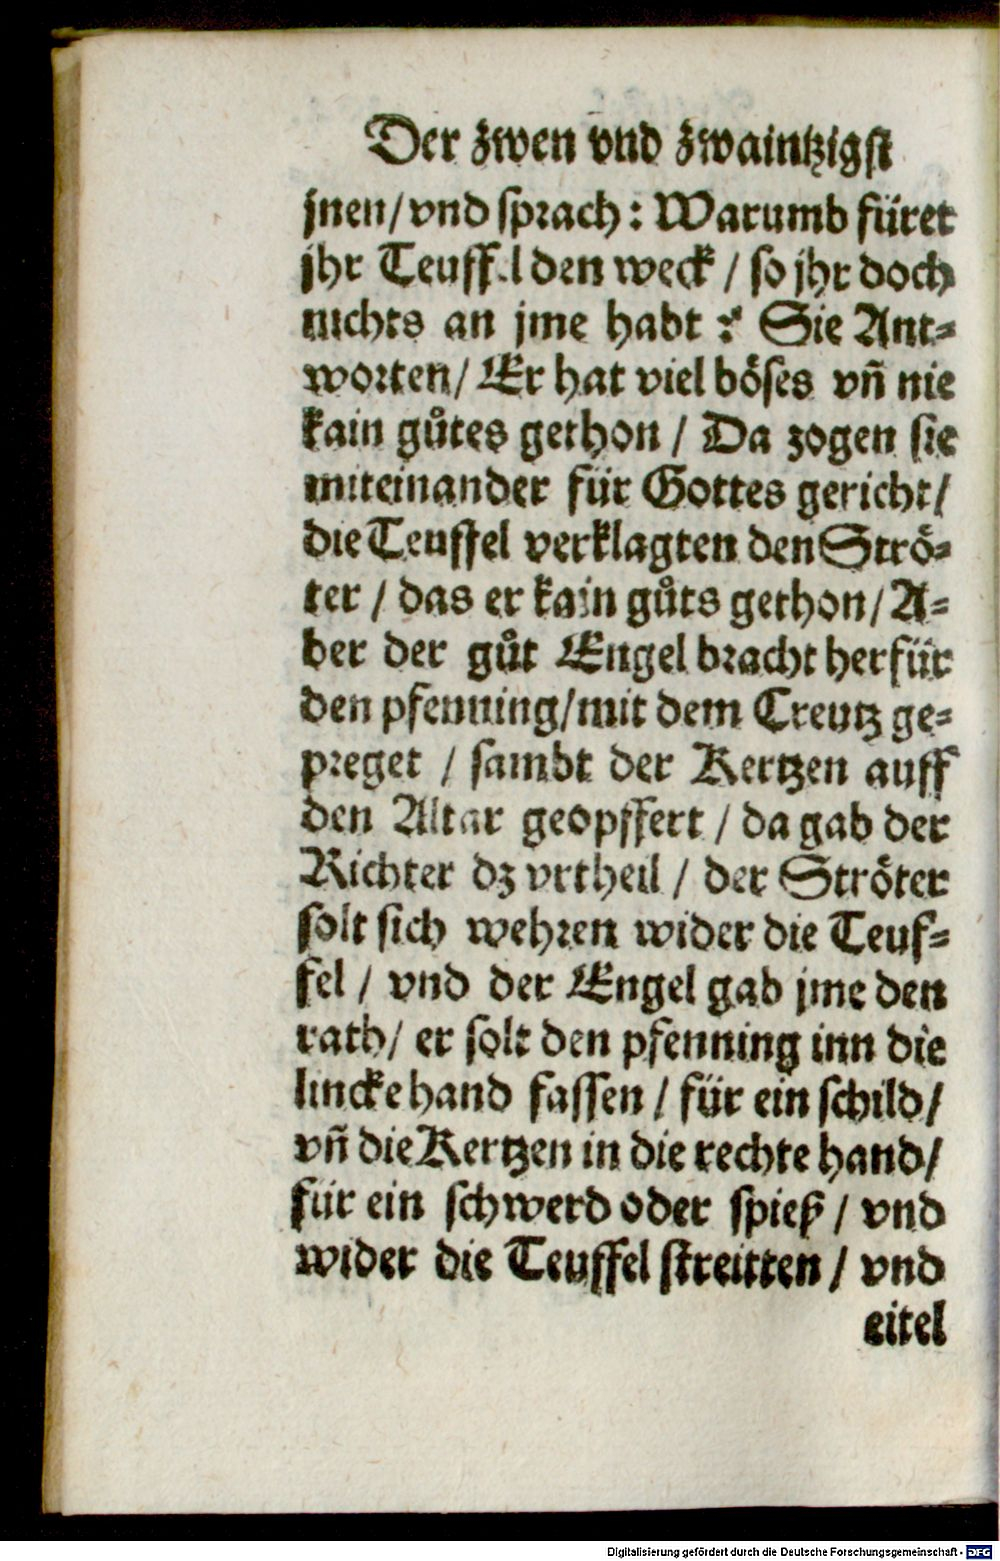 Der zwen vnd zwaintzigst
jnen/vnd sprach: Warumb füret
jhr Teuffel den weck / so jhr doch
nichts an jme habt ? Sie Ant⸗
worten/ Er hat viel böses vñ nie
kain gůtes gethon / Da zogen sie
miteinander für Gottes gericht/
die Teuffel verklagten den Strö⸗
ter / das er kain gůts gethon/ A⸗
ber der gůt Engel bracht herfür
den pfenning/mit dem Creutz ge⸗
preget / sambt der Kertzen auff
den Altar geopffert / da gab der
Richter dz vrtheil / der Ströter
solt sich wehren wider die Teuf⸗
fel / vnd der Engel gab jme den
rath/ er solt den pfenning inn die
lincke hand fassen / für ein schild/
vñ die Kertzen in die rechte hand/
für ein schwerd oder spieß / vnd
wider die Teuffel streitten / vnd
eitel
Digitalisierung gefördert durch die Deutsche Forschungsgemeinschaft - DFG